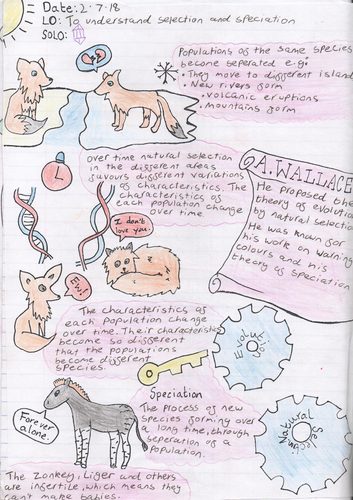 Date: 2·7·18
LO: To understand selection and speciation
SOLO:
Populations of the same species
become seperated e.g:
• They move to different island
• New rivers form
• volcanic eruptions
• Mountains form
Over time natural selection
in the different areas
favours different variations
of characteristics. The
characteristics of
each population change
over time.
L
I don't
love you.
A. WALLACE
He proposed the
theory of evolution
by natural selection
He was known for
his work on warning
colours and his
theory of speciation
The characteristics of
each population change
over time. Their characteristics
become so different
that the populations
become different
species.
Speciation
The process of new
species forming over
a long time, through
seperation of a
population.
Natural
Selection
Forever
alone.
The Zonkey, Liger and others
are infertile, which means they
can't make babies.